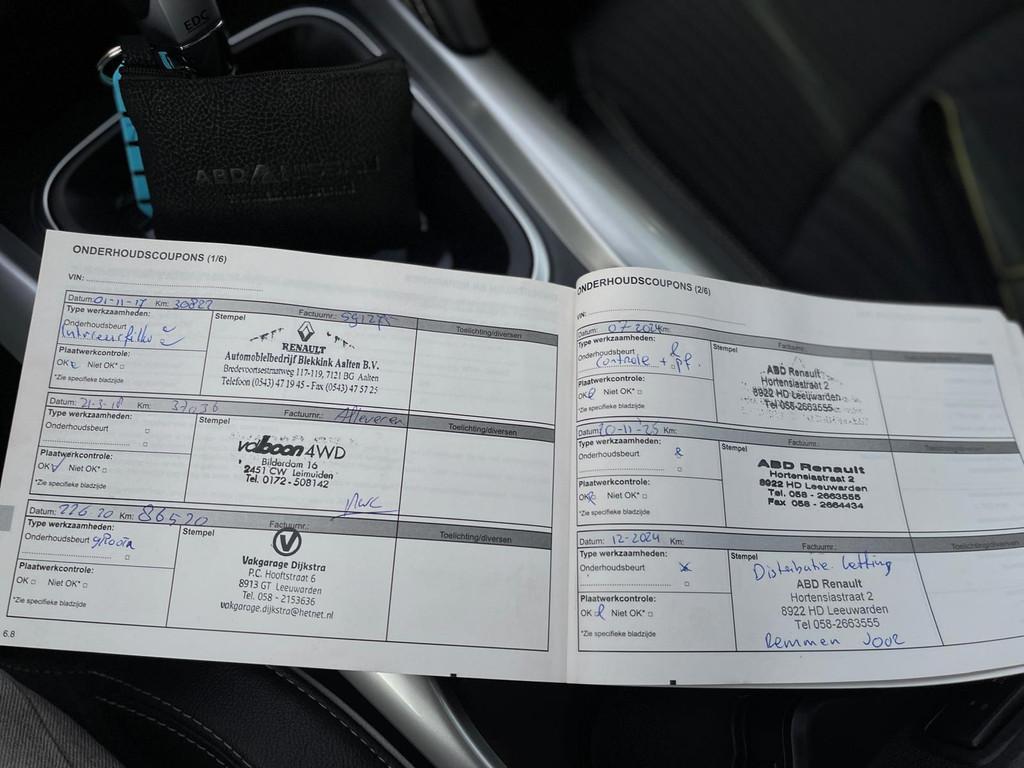 EDC
ABD
ONDERHOUDSCOUPONS (1/6)
VIN:
Datum: 01-11-17 Km: 30827 Factuurnr.:
Type werkzaamheden: Stempel Toelichting/diversen
Onderhoudsbeurt
Interieurfilter
Plaatwerkcontrole:
OK Niet OK*
*Zie specifieke bladzijde
RENAULT
Automobielbedrijf Blekkink Aalten B.V.
Bredevoortsestraatweg 117-119, 7121 BG Aalten
Telefoon (0543) 47 19 45 - Fax (0543) 47 57 25
Datum: 21-3-18 Km: 37036 Factuurnr.: Afleveren
Type werkzaamheden: Stempel Toelichting/diversen
Onderhoudsbeurt
Plaatwerkcontrole:
OK Niet OK*
*Zie specifieke bladzijde
valboon 4WD
Bilderdam 16
2451 CW Leimuiden
Tel. 0172 - 508142
Datum: 22 6 20 Km: 86520 Factuurnr.:
Type werkzaamheden: Stempel Toelichting/diversen
Onderhoudsbeurt groot
Plaatwerkcontrole:
OK Niet OK*
*Zie specifieke bladzijde
Vakgarage Dijkstra
P.C. Hooftstraat 6
8913 GT Leeuwarden
Tel. 058 - 2153636
vakgarage.dijkstra@hetnet.nl
6.8
ONDERHOUDSCOUPONS (2/6)
VIN:
Datum: 07-2024 Km: Factuurnr.:
Type werkzaamheden: Stempel
Onderhoudsbeurt
Controle + pf.
Plaatwerkcontrole:
OK Niet OK*
*Zie specifieke bladzijde
ABD Renault
Hortensiastraat 2
8922 HD Leeuwarden
Tel 058-2663555
Datum: 10-11-25 Km: Factuurnr.:
Type werkzaamheden: Stempel Toelichting/diversen
Onderhoudsbeurt
Plaatwerkcontrole:
OK Niet OK*
*Zie specifieke bladzijde
ABD Renault
Hortensiastraat 2
8922 HD Leeuwarden
Tel. 058 - 2663555
Fax 058 - 2664434
Datum: 12-2024 Km: Factuurnr.:
Type werkzaamheden: Stempel Toelichting/diversen
Onderhoudsbeurt
Plaatwerkcontrole:
OK Niet OK*
*Zie specifieke bladzijde
Distributie ketting
ABD Renault
Hortensiastraat 2
8922 HD Leeuwarden
Tel 058-2663555
Remmen voor